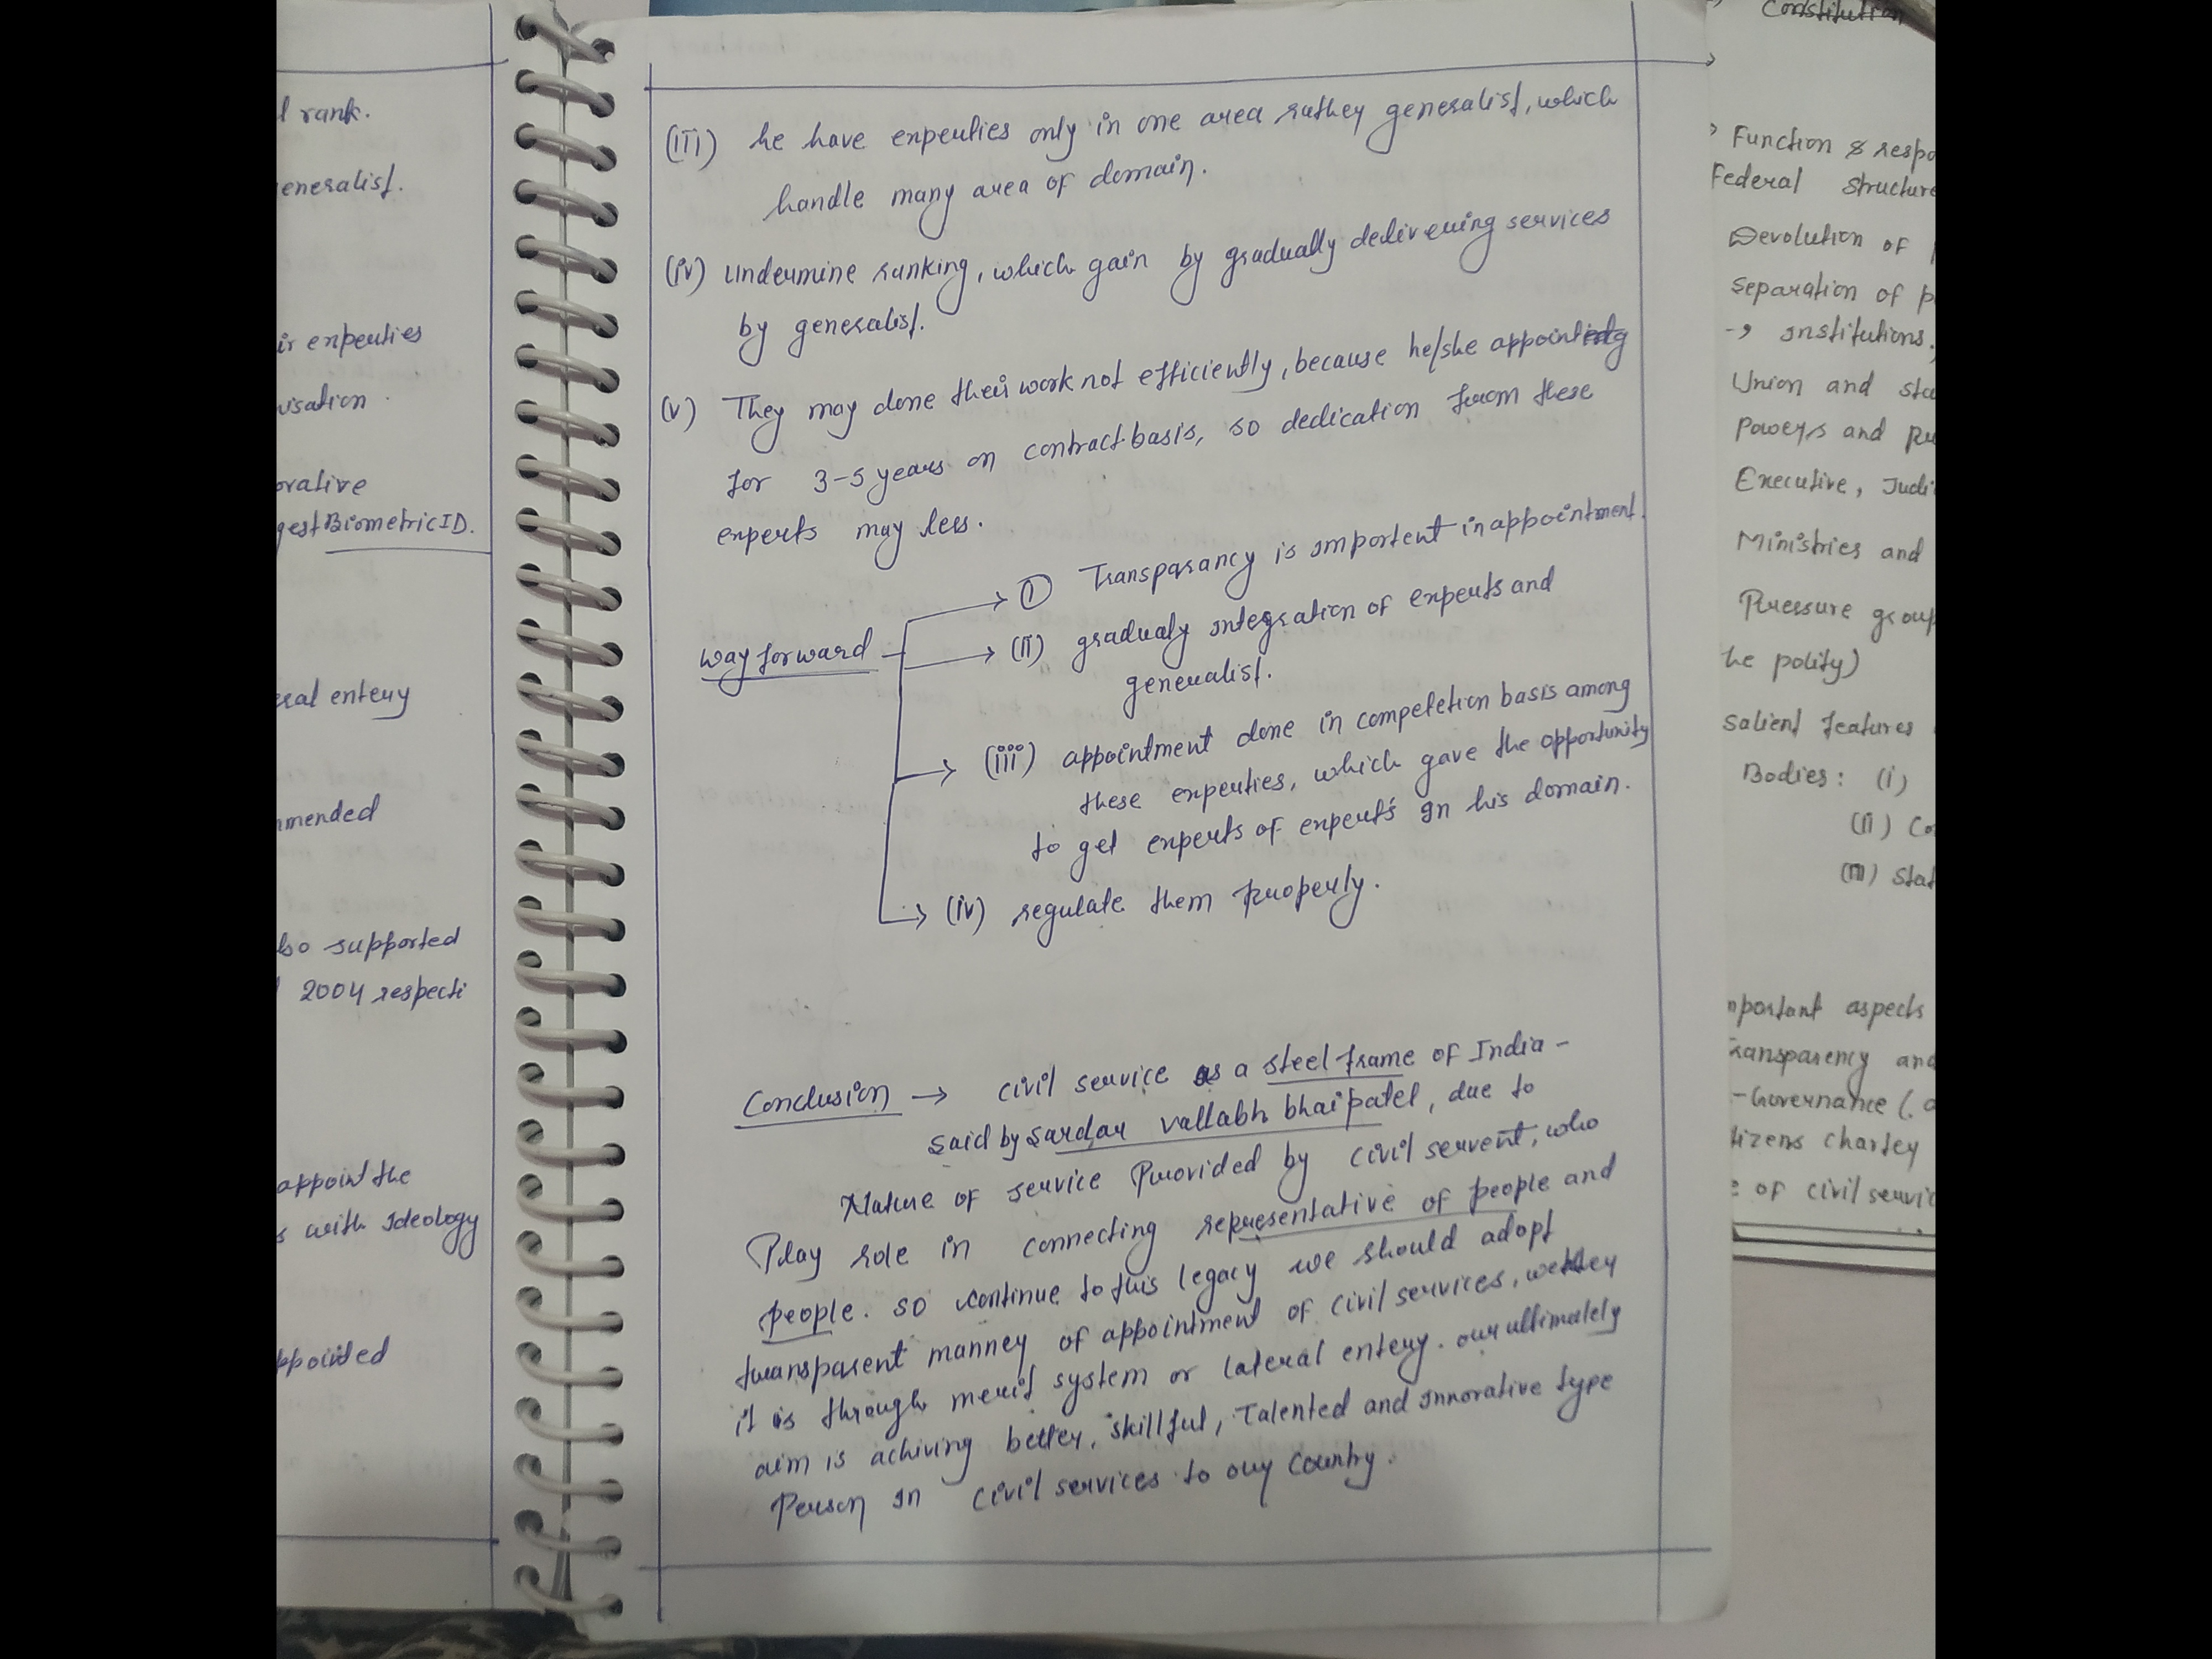 l rank.
eneralist.
ir expeuties
isation
orative
gest Biometric ID.
eral enteuy
mmended
lso supported
2004 respecti
appoint the
s with Ideology
ppointed
(iii) he have expeuties only in one area rathey generalist, which
handle many area of domain.
(iv) Undermine ranking, which gain by gradually delivering services
by generalist.
(v) They may done their work not efficiently, because he/she appointing
for 3-5 years on contract basis, so dedication from these
experts may less.
way forward
(i) Transparancy is importent in appointment.
(ii) gradualy integration of experts and
generalist.
(iii) appointment done in competetion basis among
these expeuties, which gave the opportunity
to get experts of experts in his domain.
(iv) regulate them properly.
Conclusion → civil service as a steel frame of India -
said by Sardar vallabh bhai patel, due to
Nature of service Provided by civil servent, who
Play role in connecting representative of people and
people. so continue to this legacy we should adopt
transparent manney of appointment of civil services, wethey
it is through merit system or lateral entery. our ultimately
aim is achiving better, skillful, Talented and innovative type
Person in civil services to ouy Country.
Constitution
Function & respo
Federal structure
Devolution of p
Separation of p
→ institutions.
Union and sta
Poweys and Ru
Executive, Judi
Ministries and
Pressure group
he polity)
Salient features
Bodies: (i)
(ii) Co
(iii) Stat
mportant aspects
ransparency and
-Governance (. a
tizens chartey
e of civil servic